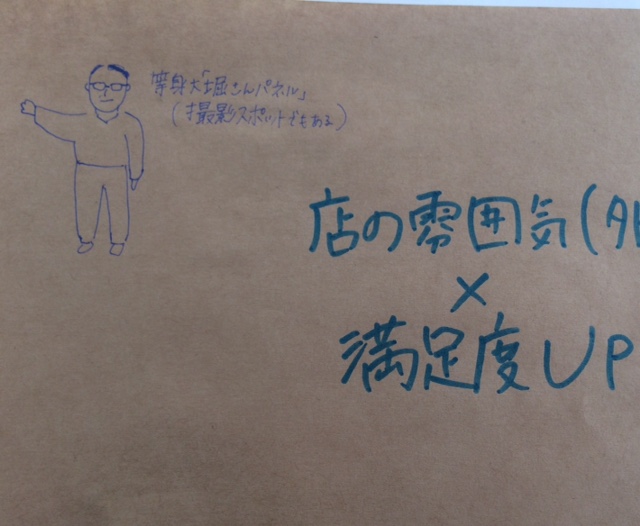 等身大「堀さんパネル」
(撮影スポットでもある)
店の雰囲気(
×
満足度UP